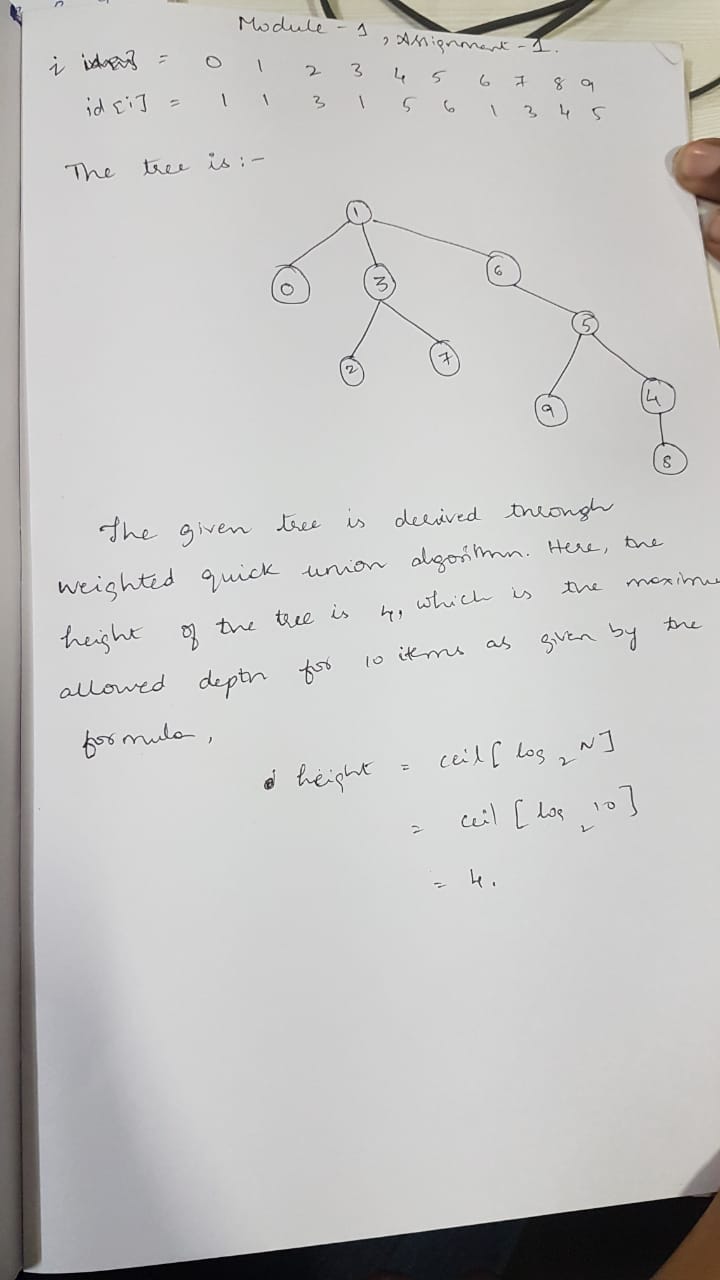 Module - 1, Assignment - 1.
i = 0 1 2 3 4 5 6 7 8 9
id[i] = 1 1 3 1 5 6 1 3 4 5
The tree is :-
1
0 3 6
5
2 7
9 4
8
The given tree is derived through
weighted quick union algorithm. Here, the
height of the tree is 4, which is the maximu
allowed depth for 10 items as given by the
formula,
height = ceil [ log 2 N ]
= ceil [ log 2 10 ]
= 4.